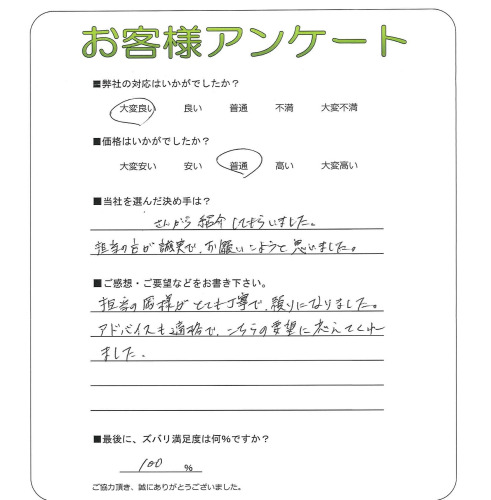 お客様アンケート
■弊社の対応はいかがでしたか？
大変良い 良い 普通 不満 大変不満
■価格はいかがでしたか？
大変安い 安い 普通 高い 大変高い
■当社を選んだ決め手は？
さんから紹介してもらいました。
担当の方が誠実で、お願いしようと思いました。
■ご感想・ご要望などをお書き下さい。
担当の 様がとても丁寧で、頼りになりました。
アドバイスも適格で、こちらの要望に応えてくれ
ました。
■最後に、ズバリ満足度は何％ですか？
100 ％
ご協力頂き、誠にありがとうございました。